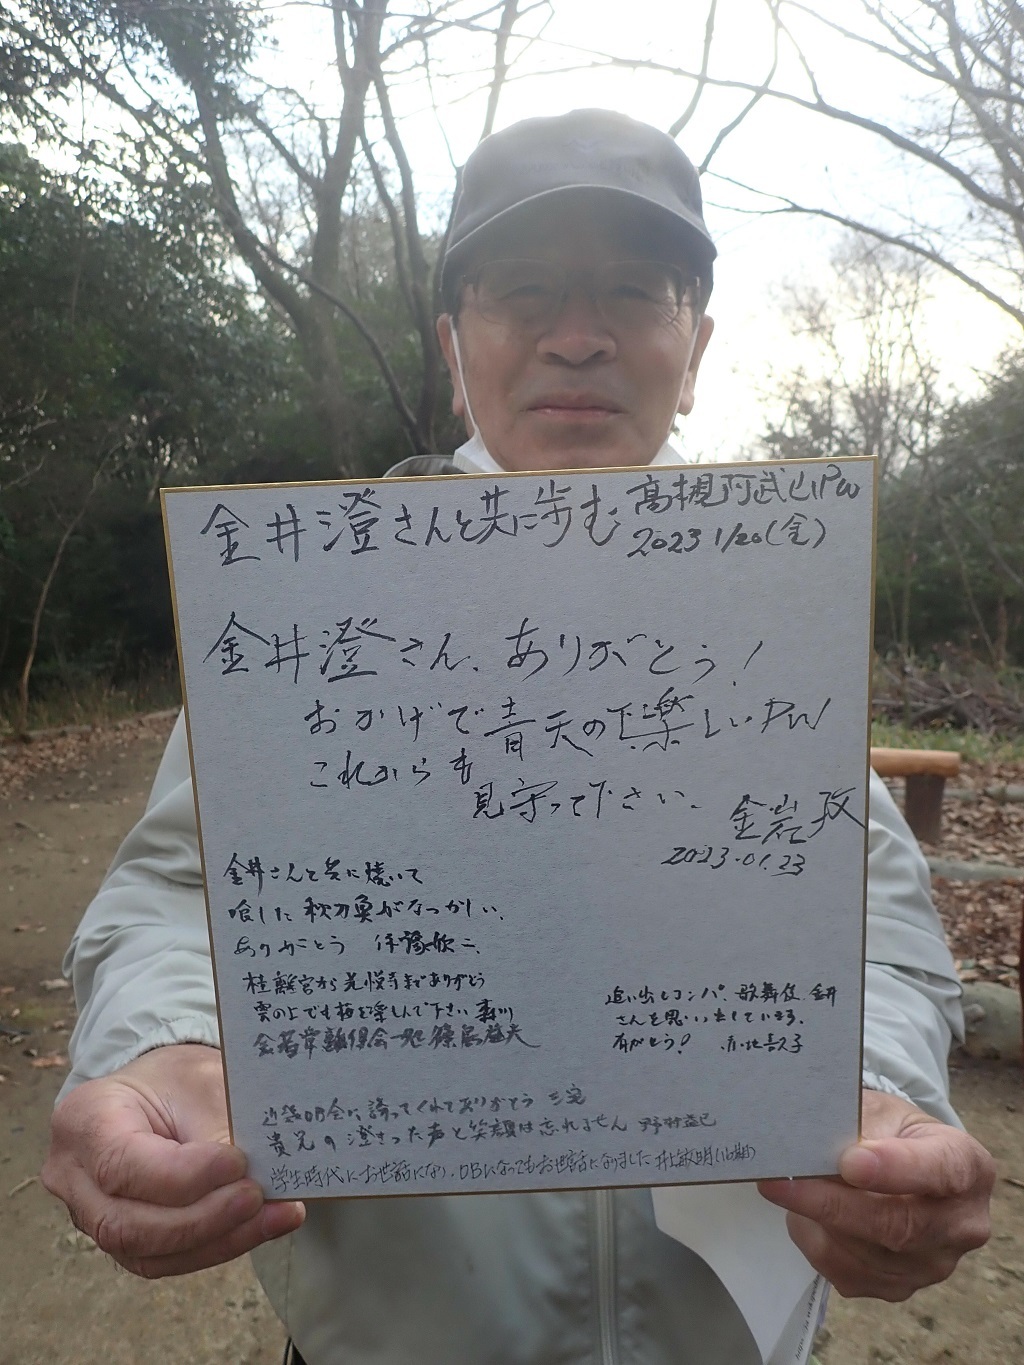 金井澄さんと共に歩む
高槻阿武山PW
2023 1/20(金)
金井澄さん、ありがとう!
おかげで青天の下楽しいPW
これからも
見守って下さい。
金岩 孜
2023.01.23
金井さんと共に焼いて
喰した秋刀魚がなつかしい。
ありがとう 伊豫欣二
桂離宮から光悦寺までありがとう
雲の上でも梅を楽しんで下さい 森川
追い出しコンパ、歌舞伎、金井
さんを思い出しています。
有がとう!
近畿OB会に誘ってくれてありがとう 三宅
貴兄の澄きった声と笑顔は忘れません 野村益己
学生時代にお世話になり、OBになってもお世話になりました 井上敏明